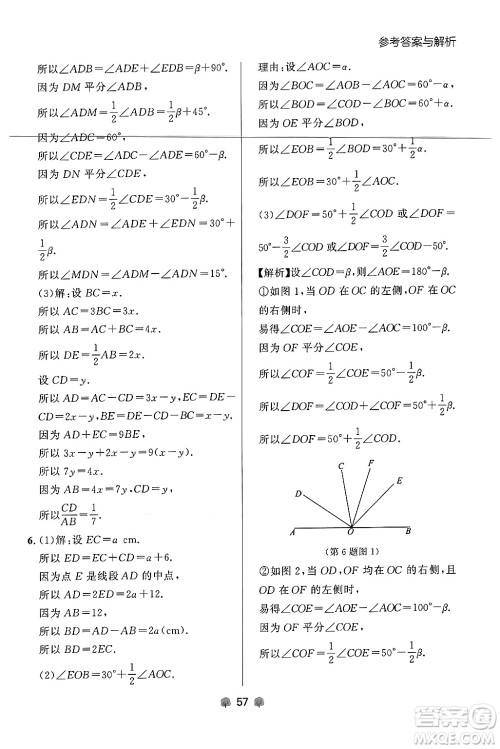 参考答案与解析
所以∠ADB=∠ADE+∠EDB=β+90°.
因为 DM 平分∠ADB,
所以∠ADM=1/2∠ADB=1/2β+45°.
因为∠ADC=60°,
所以∠CDE=∠ADC-∠ADE=60°-β.
因为 DN 平分∠CDE,
所以∠EDN=1/2∠CDE=30°-1/2β.
所以∠ADN=∠ADE+∠EDN=30°+
1/2β.
所以∠MDN=∠ADM-∠ADN=15°.
(3)解:设 BC=x.
所以 AC=3BC=3x.
所以 DE=1/2AB=2x.
设 CD=y.
所以 AD=AC-CD=3x-y,EC=DE-
CD=2x-y,BE=BC-EC=y-x.
因为 AD+EC=9BE,
所以 3x-y+2x-y=9(y-x).
所以 7y=4x.
因为 CD=y,AB=4x=7y,
所以CD/AB=1/7.
6. (1)解:设 EC=a cm.
所以 ED=EC+CD=a+6.
因为点 E 是线段 AD 的中点,
所以 AD=2ED=2a+12.
因为 AB=12,
所以 BD=AD-AB=2a(cm).
所以 BD=2EC.
(2)∠EOB=30°+1/2∠AOC.
理由:设∠AOC=α.
因为∠BOC=∠AOC+60°=α.
所以∠BOD=∠BOC+60°=60°+α.
因为 OE 平分∠BOD,
所以∠EOB=1/2∠BOD=30°+1/2α.
所以∠EOB=30°+1/2∠AOC.
(3)∠DOF=50°+1/2∠COD 或∠DOF=
50°-3/2∠COD 或∠DOF=3/2∠COD-50°.
【解析】设∠COD=β,则∠AOE=180°-β.
①如图 1,当 OD 在 OC 的左侧,OE 在 OC
的右侧时,
易得∠COE=∠AOE-∠AOC=100°-β.
因为 OF 平分∠COE,
所以∠COF=1/2∠COE=50°-1/2β.
所以∠DOF=∠COD+∠COF=50°+
1/2β.
所以∠DOF=50°+1/2∠COD.
C
F
D
E
A
O
B
(第 6 题图 1)
②如图 2,当 OD,OF 均在 OC 的右侧,OE
在 OF 的左侧时,
易得∠COE=∠AOE-∠AOC=100°-β.
因为 OF 平分∠COE,
所以∠COF=1/2∠COE=50°-1/2β.
57
MXQE.COM